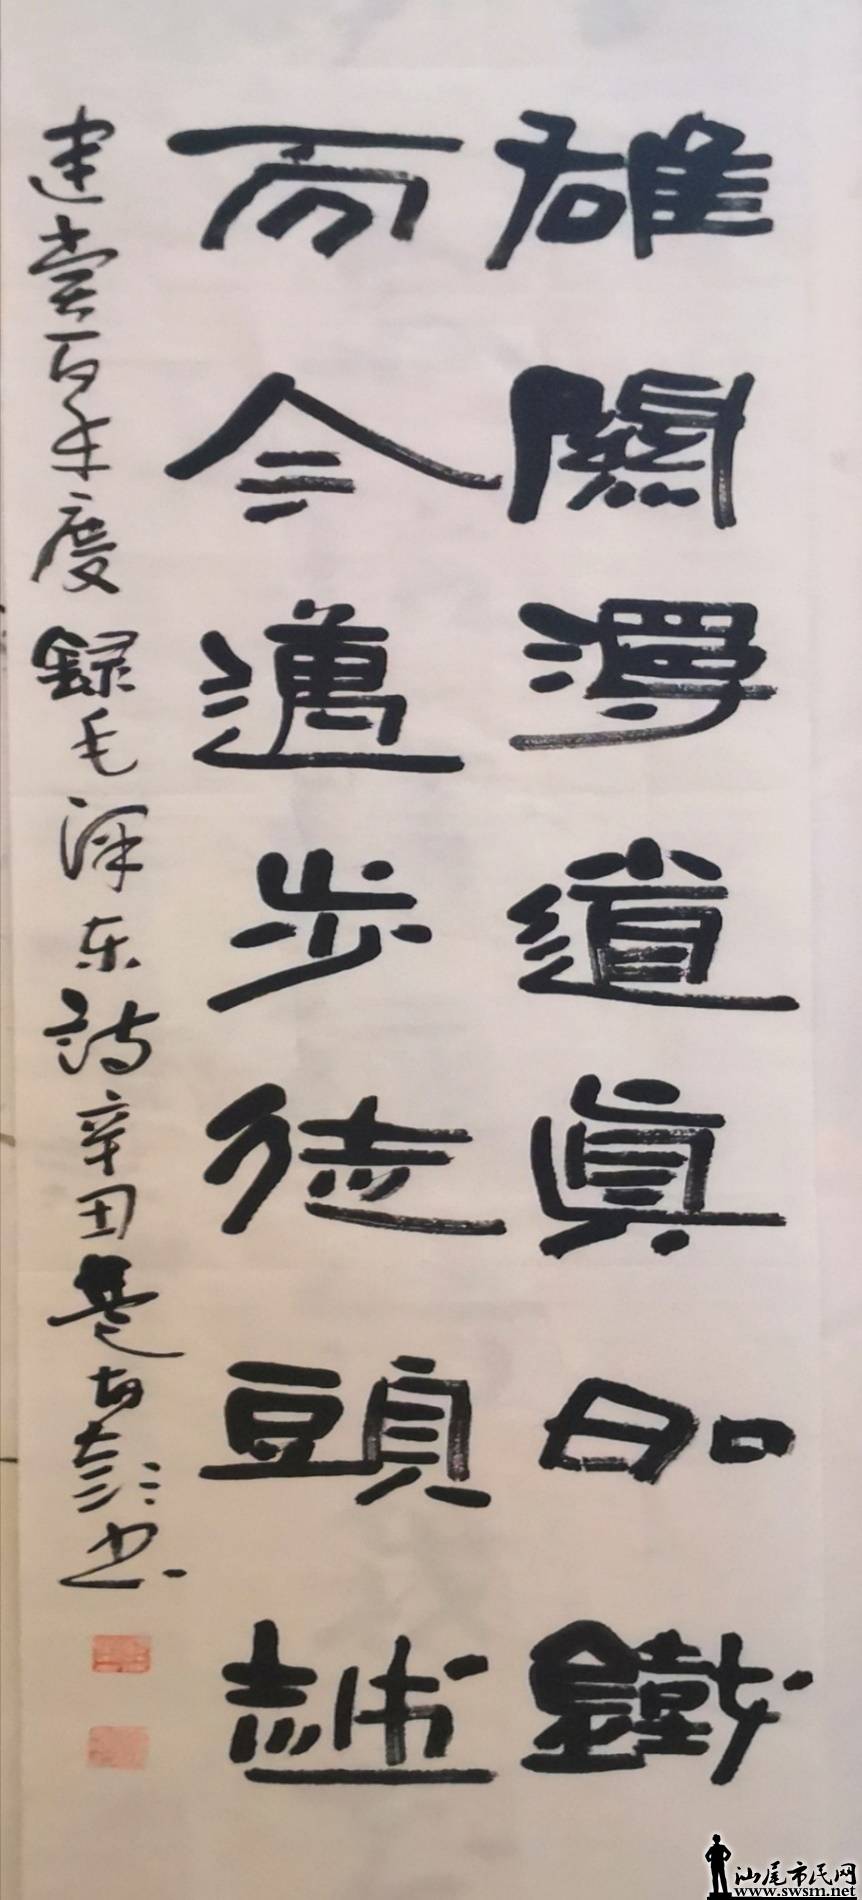 雄關漫道眞如鐵
而今邁步從頭越
建党百年度録毛泽东詩辛丑書
汕尾市民网
www.swsm.net